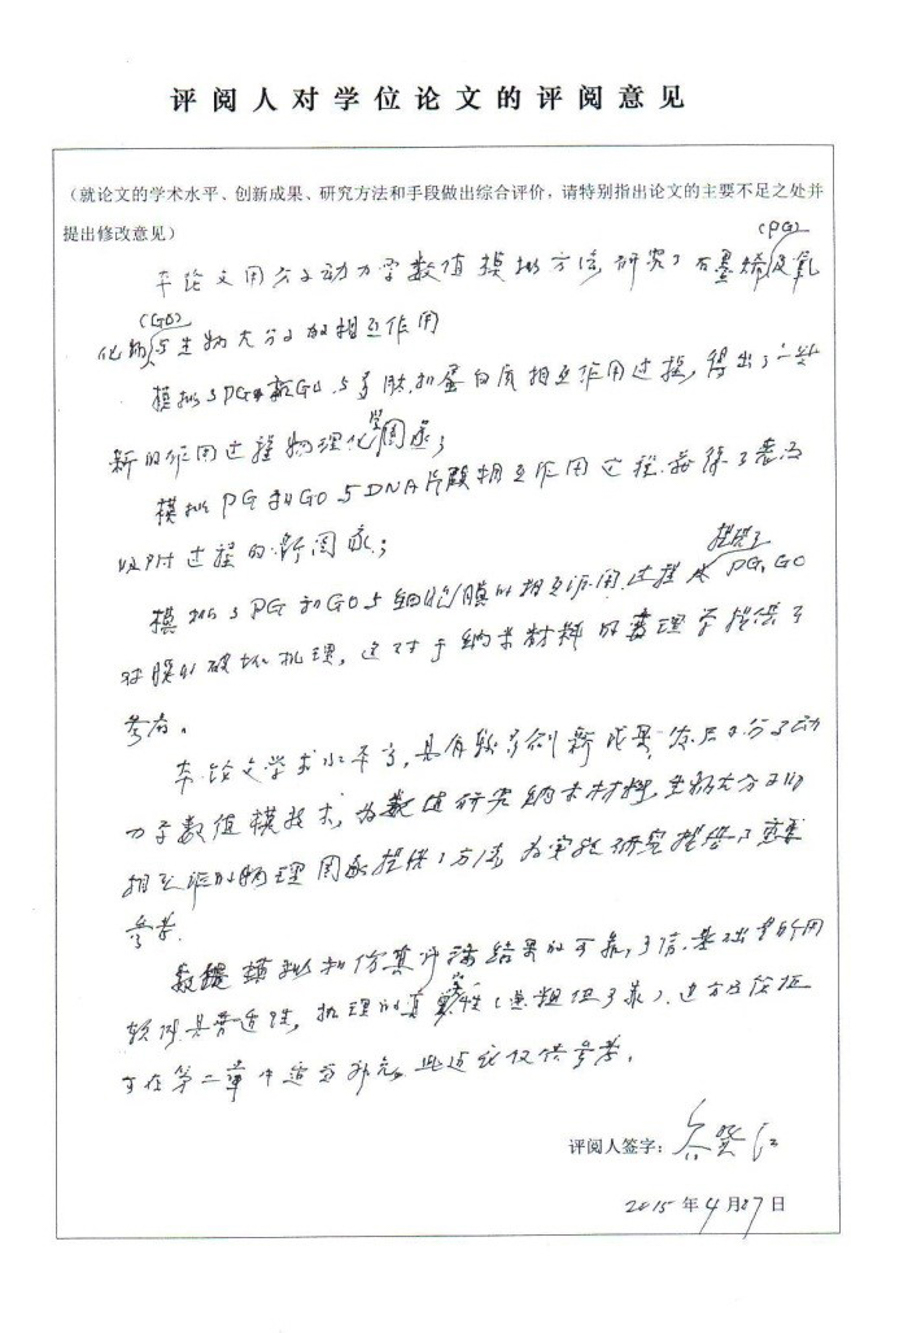 评阅人对学位论文的评阅意见
（就论文的学术水平、创新成果、研究方法和手段做出综合评价，请特别指出论文的主要不足之处并
提出修改意见）
(PG)
本论文用分子动力学数值模拟方法，研究了石墨烯及氧
(GO)
化物与生物大分子的相互作用
模拟了PG和GO与多肽和蛋白质相互作用过程，得出了一些
新的作用过程物理化学图象；
模拟PG和GO与DNA片段相互作用过程，获得了
吸附过程的新图象；
提供了
模拟了PG和GO与细胞膜的相互作用过程 PG、GO
对膜的破坏机理，这对于纳米材料的毒理学提供了
参考。
本论文学术水平高，具有较多创新成果，发展了分子动
力学数值模技术，为数值研究纳米材料，生物大分子的
相互作用物理图象提供了方法，为实验研究提供了重要
参考。
数据模拟和仿真 结果的可靠，可信，基础是所用
软件具普适性，机理的真实性
可在第二章中适当补充。此建议仅供参考。
评阅人签字：
2015年4月07日